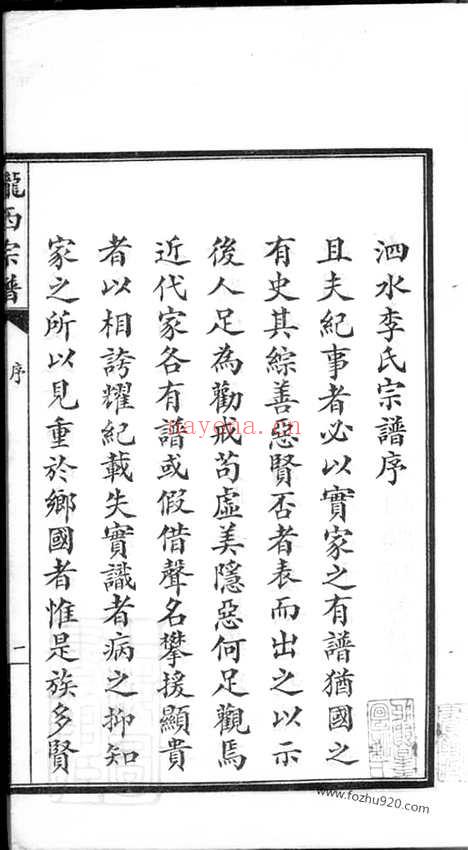 泗水李氏宗譜序
且夫紀事者必以實家之有譜猶國之
有史其綜善惡賢否者表而出之以示
後人足為勸戒苟虛美隱惡何足觀焉
近代家各有譜或假借聲名攀援顯貴
者以相誇耀紀載失實識者病之抑知
家之所以見重於鄉國者惟是族多賢
隴西宗譜
序
一
nayena.cn
www.fozhu920.com